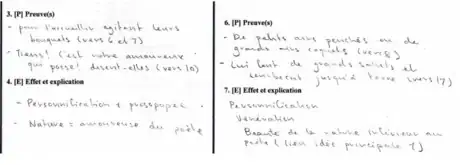 3. [P] Preuve(s)
- pour l'accueillir agitent leurs
bouquets (vers 6 et 7)
- Tiens! c'est notre amoureux
qui passe! disent-elles (vers 10)
4. [E] Effet et explication
- Personnification + prosopopée
- Nature = amoureuse du poète
6. [P] Preuve(s)
- De petits airs penchés ou de
grands airs coquets (vers 8)
- Lui font de grands saluts et
courbent jusqu'à terre (vers 17)
7. [E] Effet et explication
Personnification
Vénération
Beauté de la nature inférieure au
poète (lien idée principale 1)